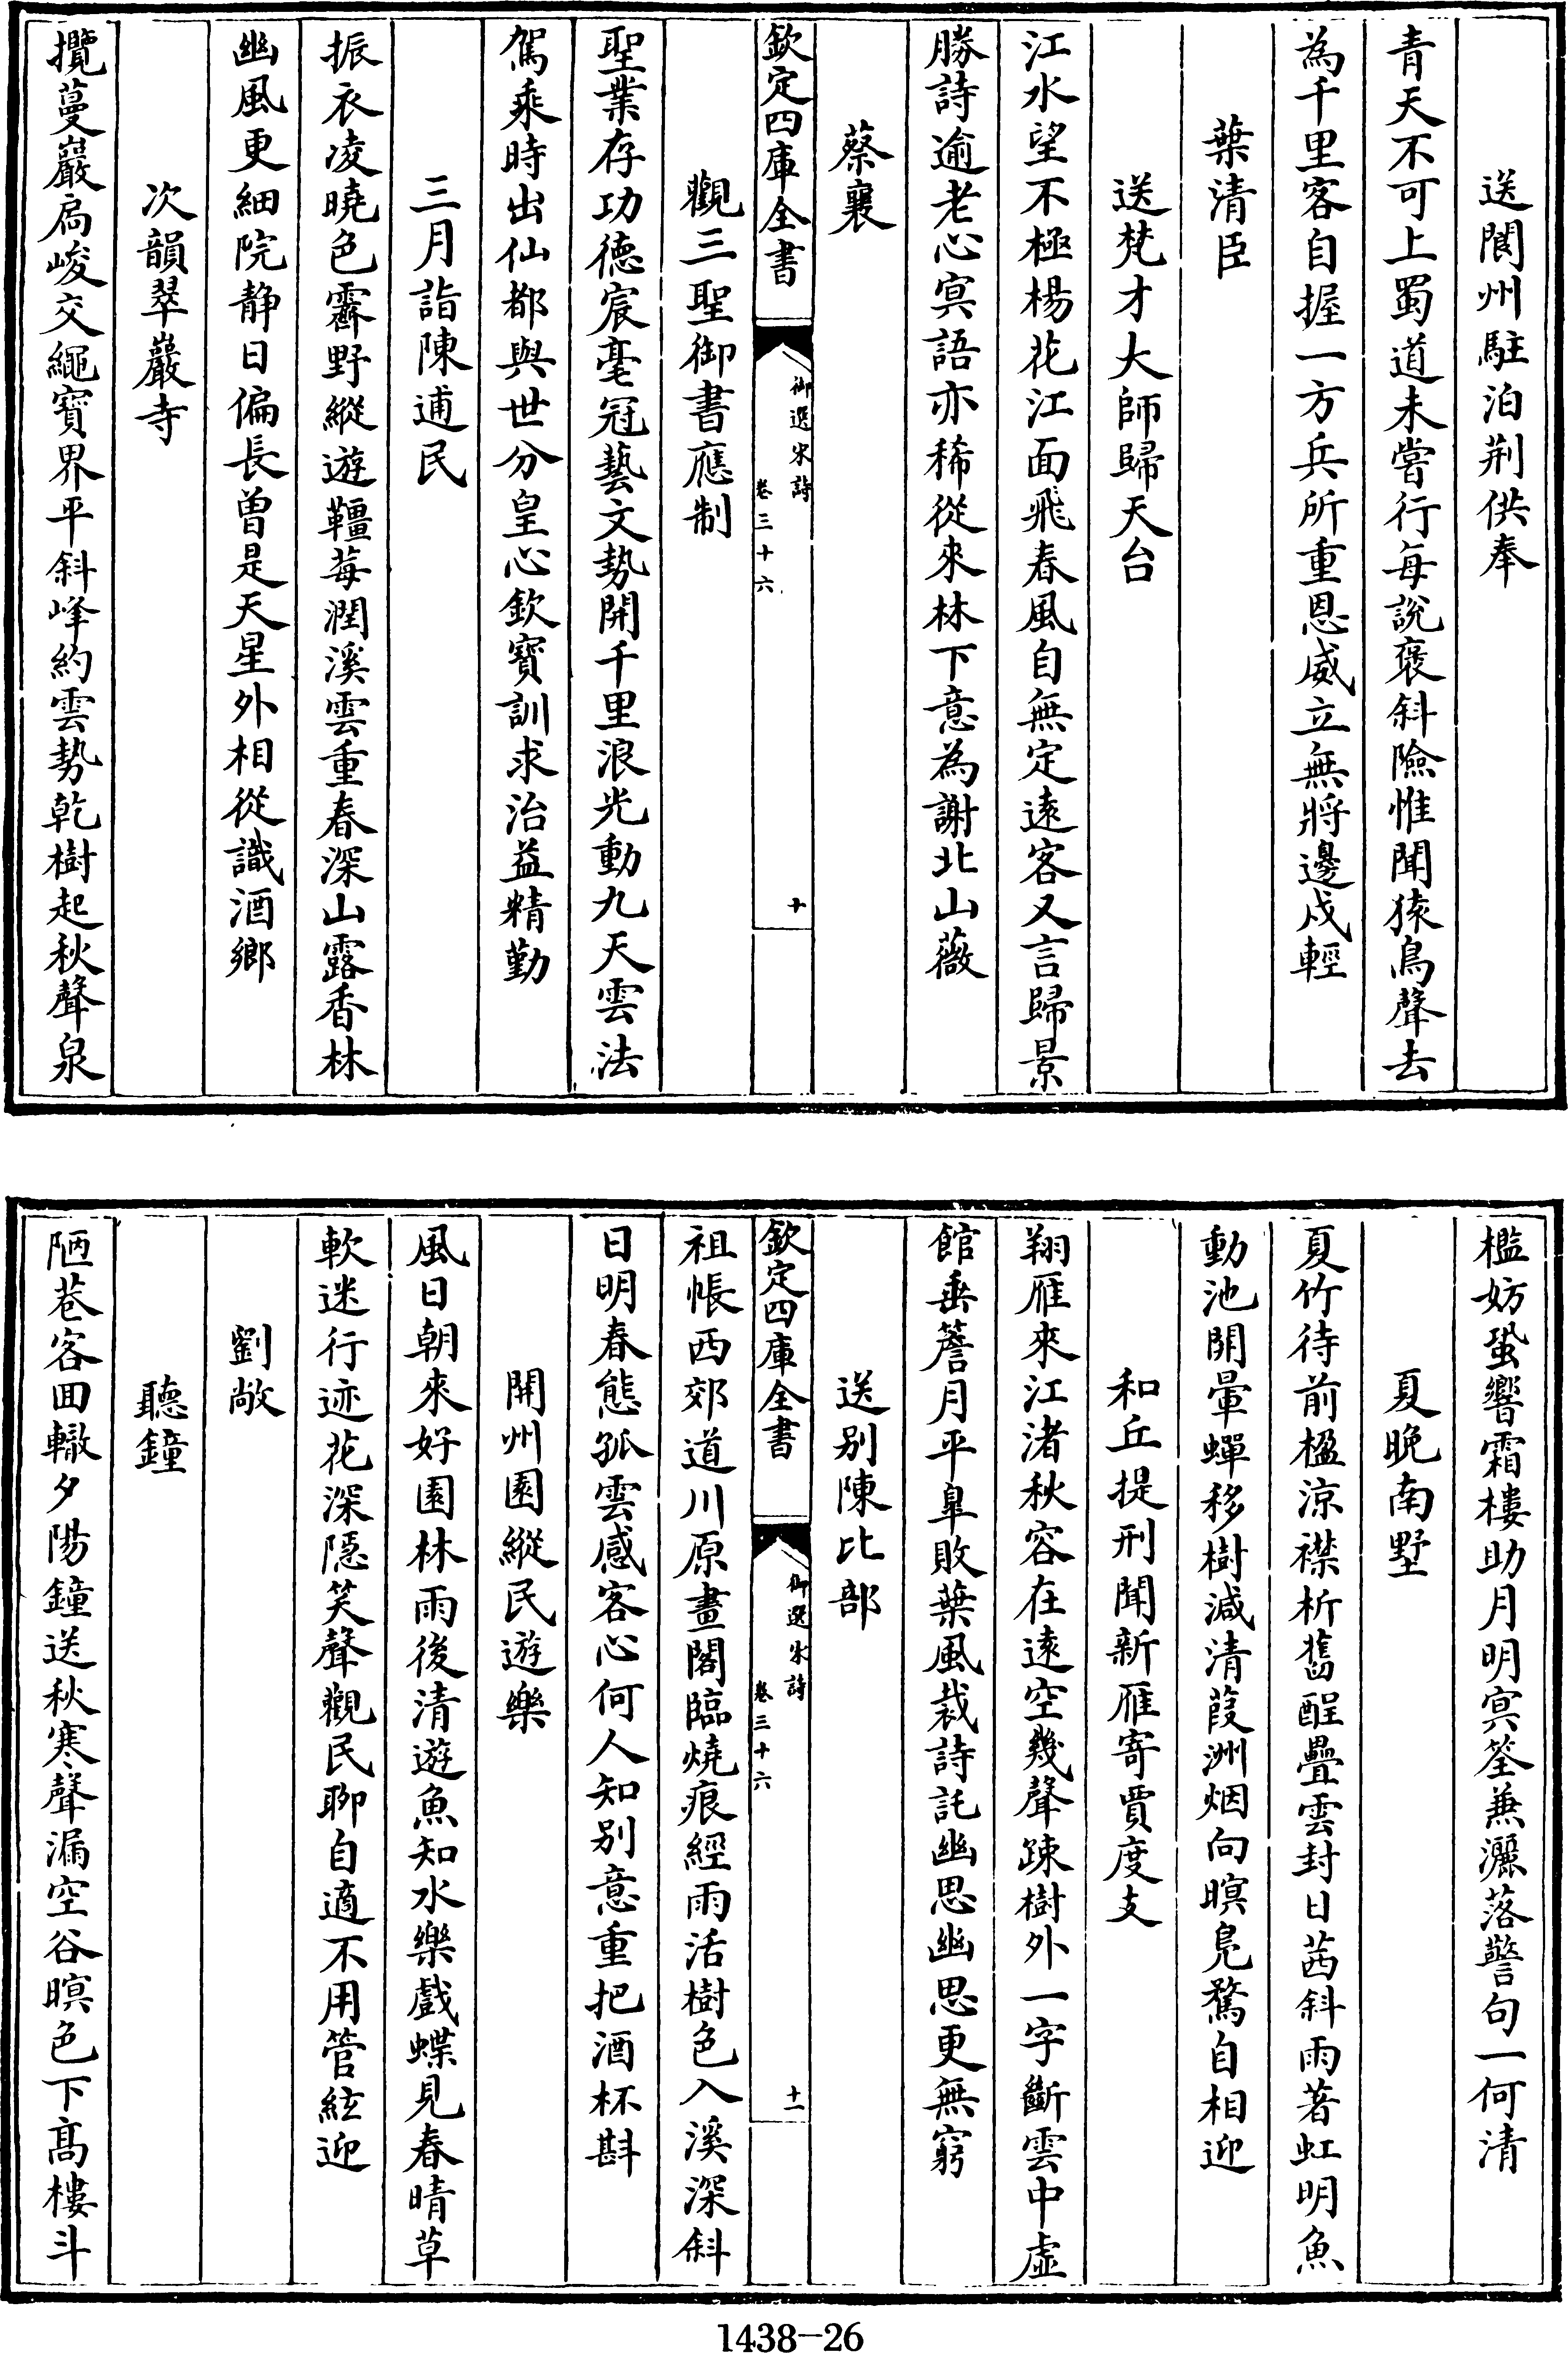 送閬州駐泊荆供奉
青天不可上蜀道未嘗行每說褒斜險惟聞猿鳥聲去
為千里客自握一方兵所重恩威立無將邊戍輕
葉清臣
送梵才大師歸天台
江水望不極楊花江面飛春風自無定遠客又言歸景
勝詩逾老心冥語亦稀從來林下意為謝北山薇
蔡襄
欽定四庫全書
御選宋詩
卷三十六
十
觀三聖御書應制
聖業存功德宸毫冠藝文勢開千里浪光動九天雲法
駕乘時出仙都與世分皇心欽寶訓求治益精勤
三月詣陳逋民
振衣凌曉色霽野縱遊韁莓潤溪雲重春深山露香林
幽風更細院静日偏長曾是天星外相從識酒鄉
次韻翠巖寺
攬蔓巖扃峻交繩寶界平斜峰約雲勢乾樹起秋聲泉
檻妨蛩響霜樓助月明冥筌兼灑落警句一何清
夏晚南墅
夏竹待前楹涼襟析舊酲疊雲封日茜斜雨著虹明魚
動池開暈蟬移樹減清葭洲烟向暝鳧鶩自相迎
和丘提刑聞新雁寄賈度支
翔雁來江渚秋容在遠空幾聲踈樹外一字斷雲中虛
館垂簷月平臯敗葉風裁詩託幽思幽思更無窮
送别陳比部
欽定四庫全書
御選宋詩
卷三十六
十一
祖帳西郊道川原畫閣臨燒痕經雨活樹色入溪深斜
日明春態孤雲感客心何人知别意重把酒杯斟
開州園縱民遊樂
風日朝來好園林雨後清遊魚知水樂戲蝶見春晴草
軟迷行迹花深隱笑聲觀民聊自適不用管絃迎
劉敞
聽鐘
陋巷客回轍夕陽鐘送秋寒聲漏空谷暝色下髙樓斗
1438-26